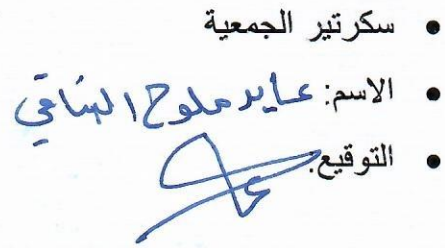 • سكرتير الجمعية
• الاسم: عايد ملوح
• التوقيع: